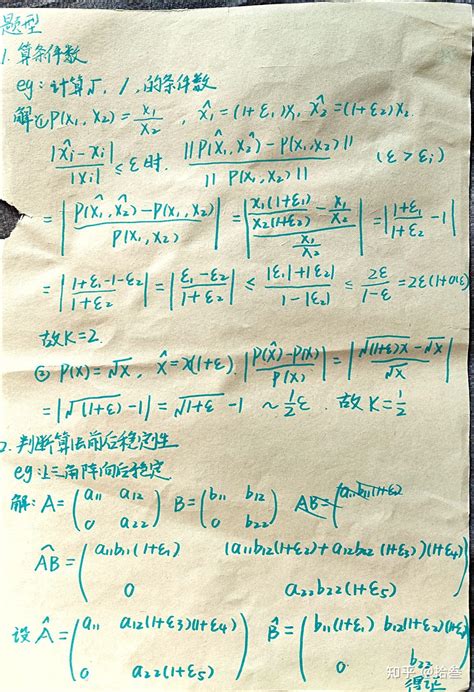 题型
1. 算条件数
eg: 计算√, /, 的条件数
解: ① P(x₁, x₂) = x₁/x₂, x̂₁ = (1+ε₁)x₁, x̂₂ = (1+ε₂)x₂
|x̂ᵢ-xᵢ|/|xᵢ| ≤ ε 时, ||P(x̂₁, x̂₂) - P(x₁, x₂)||/||P(x₁, x₂)|| (ε > εᵢ)
= |(P(x̂₁, x̂₂) - P(x₁, x₂))/P(x₁, x₂)| = |(x₁(1+ε₁)/x₂(1+ε₂) - x₁/x₂)/(x₁/x₂)| = |(1+ε₁)/(1+ε₂) - 1|
= |(1+ε₁-1-ε₂)/(1+ε₂)| = |(ε₁-ε₂)/(1+ε₂)| ≤ (|ε₁|+|ε₂|)/(1-|ε₂|) ≤ 2ε/(1-ε) = 2ε(1+o(ε
故K=2.
② P(x) = √x, x̂ = x(1+ε). |(P(x̂)-P(x))/P(x)| = |(√(1+ε)x - √x)/√x|
= |√(1+ε) - 1| = √1+ε - 1 ~ ½ε. 故K=½
2. 判断算法前后稳定性
eg: 上三角阵向后稳定
解: A = (a₁₁ a₁₂ B = (b₁₁ b₁₂ AB = (a₁₁b₁₁(1+ε)
0 a₂₂) 0 b₂₂)
ÂB = (a₁₁b₁₁(1+ε₁) (a₁₁b₁₂(1+ε₂) + a₁₂b₂₂(1+ε₃))(1+ε₄)
0 a₂₂b₂₂(1+ε₅)
设 Â = (a₁₁ a₁₂(1+ε₃)(1+ε₄) B̂ = (b₁₁(1+ε₁) b₁₂(1+ε₂)(1+ε₄)
0 a₂₂(1+ε₅) 0 b₂₂
得证
知乎 @拾叁